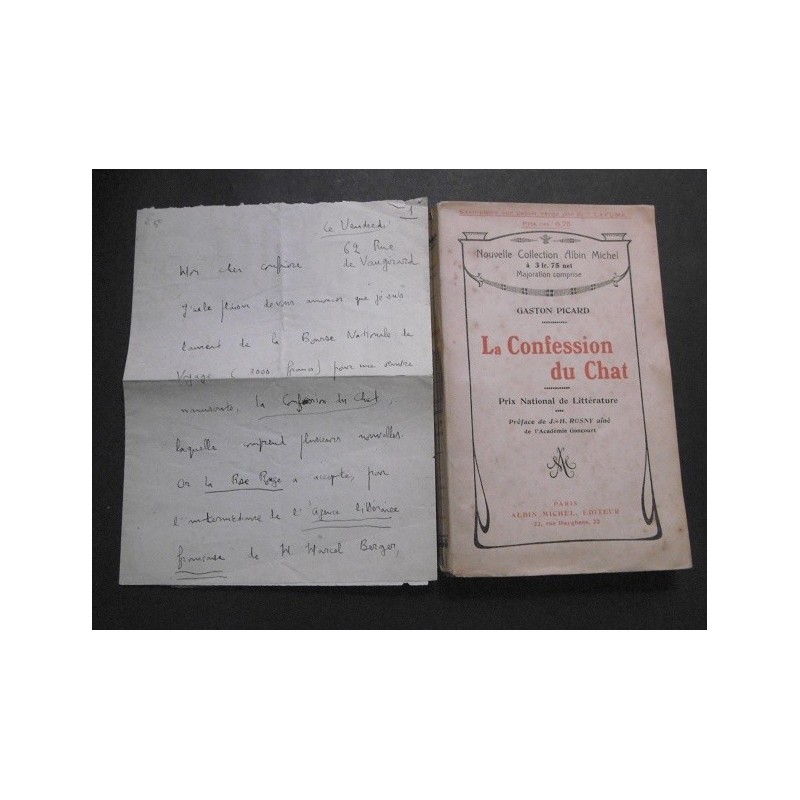 1
Le Vendredi
62 Rue
de Vaugirard
Mon cher confrère
J'ai le plaisir de vous annoncer que je suis
laurent de la Bourse Nationale de
Voyage (3000 francs) pour une œuvre
manuscrite, La Confession du Chat,
laquelle comprend plusieurs nouvelles.
Or La Rose Rouge a accepté, par
l'intermédiaire de l'Agence littéraire
française de M. Marcel Berger,
Nouvelle Collection Albin Michel
à 3 fr. 75 net
Majoration comprise
GASTON PICARD
La Confession
du Chat
Prix National de Littérature
Préface de J.-H. ROSNY aîné
de l'Académie Goncourt
AM
PARIS
ALBIN MICHEL, ÉDITEUR
22, rue Huyghens, 22